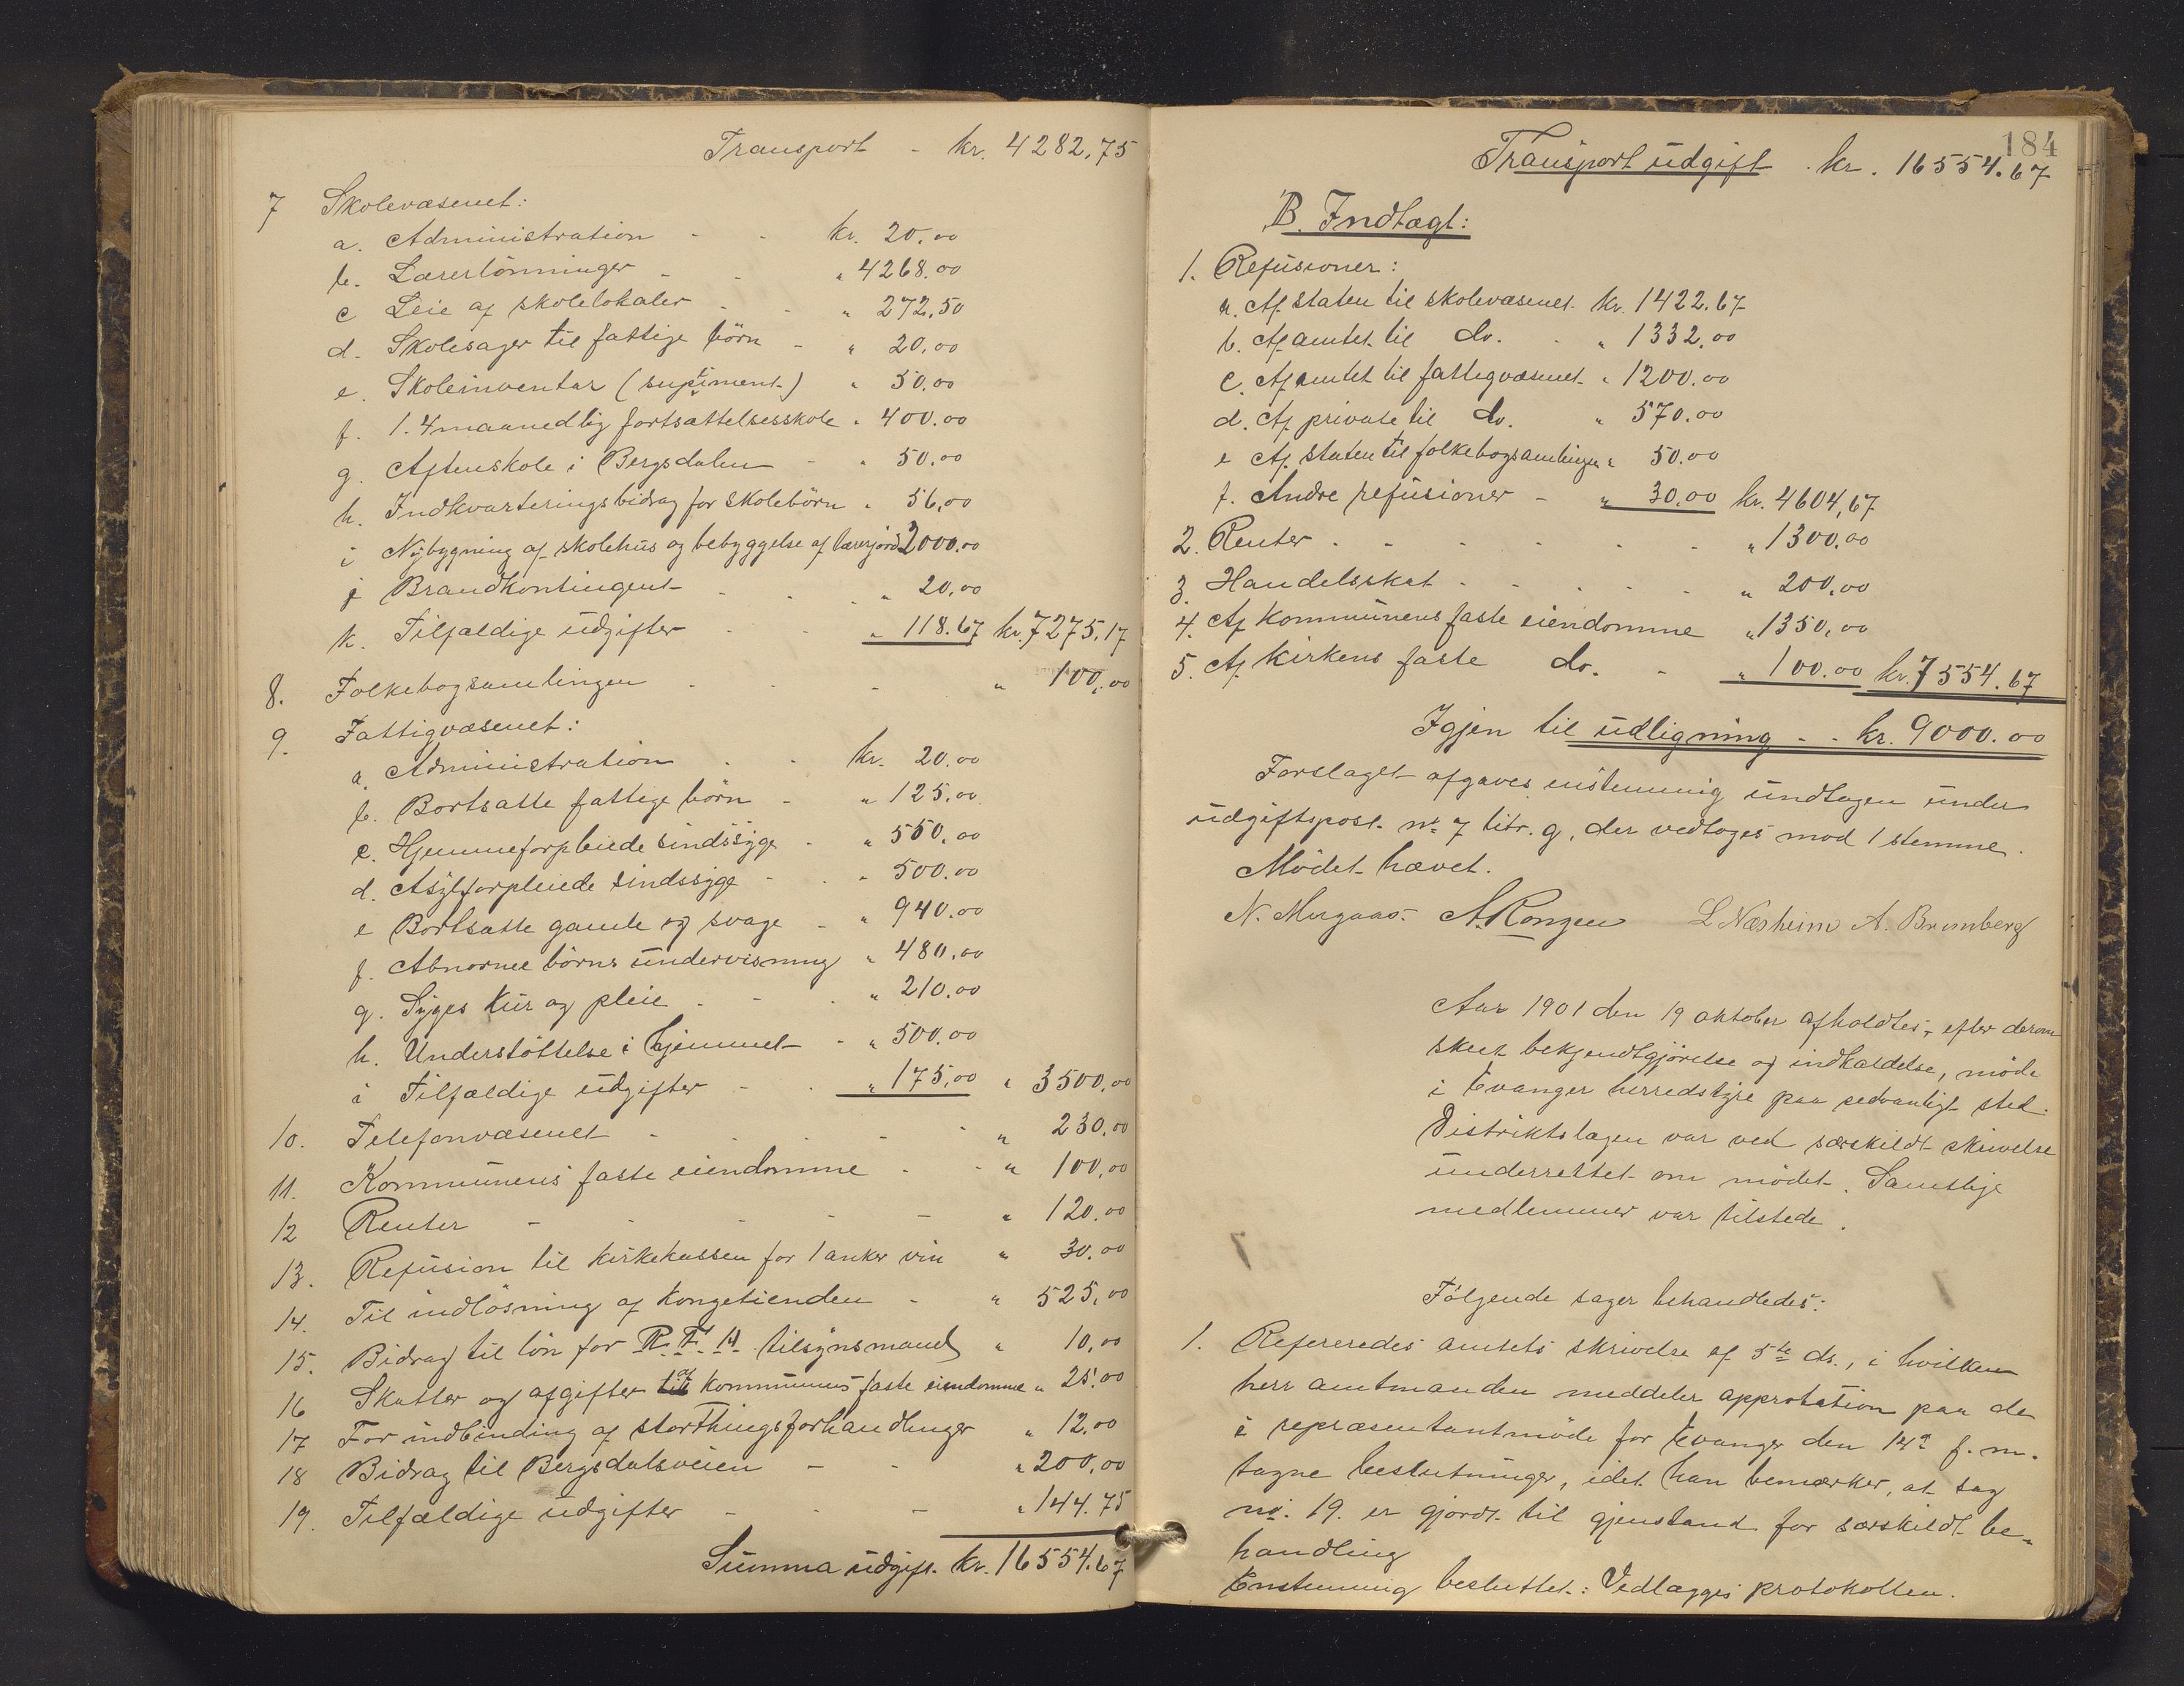 Transport - kr. 4282.75
7 Skolevæsenet:
a. Administration - - kr. 20.00
b. Lærerlönninger - - " 4268.00
c Leie af skolelokaler - - " 272.50
d. Skolesager til fattige börn - " 20.00
e. Skoleinventar (supliment.) " 50.00
f. 1. 4maanedlig fortsættelsesskole " 400.00
g. Aftenskole i Bergsdalen - " 50.00
h. Indkvarteringsbidrag for skolebörn " 56.00
i Nybygning af skolehus og bebyggelse af lærerjord 2000.00
j Brandkontingent - - " 20.00
k. Tilfældige udgifter - - " 118.67 kr. 7275.17
8. Folkebogsamlingen - - - " 100.00
9. Fattigvæsenet:
a. Administration - - kr. 20.00
b. Bortsatte fattige börn - " 125.00
c. Hjemmeforpleiede sindssyge - " 550.00
d. Asylforpleiede sindssyge - " 500.00
e Bortsatte gamle og svage - " 940.00
f. Abnorme börns undervisning " 480.00
g. Syges kur og pleie - - " 210.00
h. Understöttelse i hjemmet - " 500.00
i Tilfældige udgifter - - " 175.00 " 3500.00
10. Telefonvæsenet - - - - " 230.00
11. Kommunens faste eiendomme - - " 100.00
12 Renter - - - - - " 120.00
13. Refusion til kirkekassen for 1 anker vin " 30.00
14. Til indlösning af kongetienden - " 525.00
15. Bidrag til lön for R. F. H. tilsynsmand " 10.00
16 Skatter og afgifter af kommunens faste eiendomme " 25.00
17 For indbinding af storthingsforhandlinger " 12.00
18 Bidrag til Bergsdalsveien - - " 200.00
19. Tilfældige udgifter - - - " 144.75
Summa udgift. kr. 16554.67
184
Transport udgift . kr. 16554.67
B. Indtægt:
1. Refusioner:
a. Af staten til skolevæsenet. kr. 1422.67
b. Af amtet til do. - " 1332.00
c. Af amtet til fattigvæsenet. " 1200.00
d. Af private til do. " 570.00
e Af staten til folkebogsamlingen " 50.00
f. Andre refusioner - " 30.00 kr. 4604,67
2. Renter . - - - - - " 1300.00
3. Handelsskat - - - - - " 200.00
4. Af kommunens faste eiendomme " 1350.00
5. Af kirkens faste do. - " 100.00 kr. 7554.67
Igjen til udligning - - kr. 9000.00
Forslaget afgaves enstemmig undtagen under
udgiftspost. no 7 litr. g. der vedtoges mod 1 stemme.
Mödet hævet.
N. Mugaas. A. Rongen L Næsheim A. Brunborg
Aar 1901 den 19 oktober afholdtes, efter derom
skeet bekjendtgjörelse og indkaldelse, möde
i Evanger herredstyre paa sedvanligt sted.
Distriktslægen var ved særskildt skrivelse
underrettet om mödet. Samtlige
medlemmer var tilstede.
Fölgende sager behandledes:
1. Refereredes amtets skrivelse af 5te ds., i hvilken
herr amtmanden meddeler approbation paa de
i repræsentantmöde for Evanger den 14de f. m.
tagne beslutninger, idet han bemærker, at sag
no. 19. er gjordt til gjenstand for særskildt be-
handling
Enstemmig besluttet: Vedlægges protokollen.